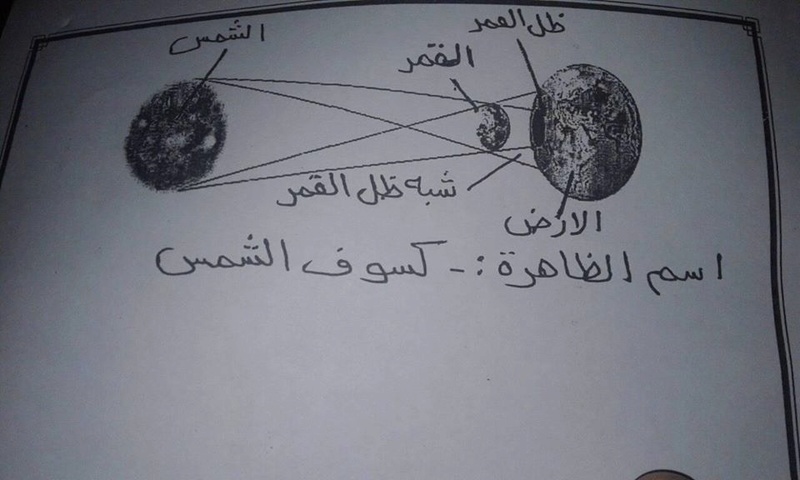 الشمس
ظل القمر
القمر
شبه ظل القمر
الارض
اسم الظاهرة :- كسوف الشمس